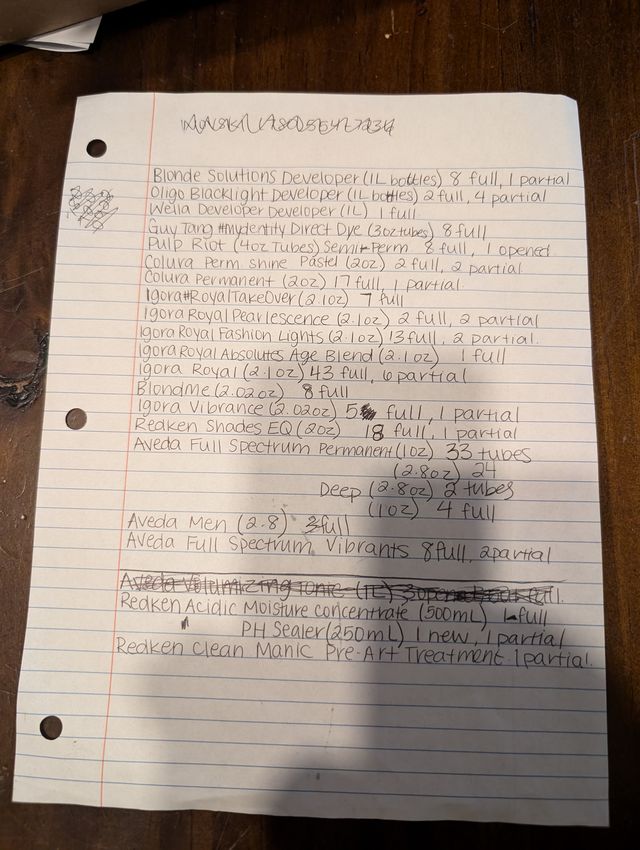 Blonde Solutions Developer (1L bottles) 8 full, 1 partial
Oligo Blacklight Developer (1L bottles) 2 full, 4 partial
Wella Developer Developer (1L) 1 full
Guy Tang #mydentity Direct Dye (3oz tubes) 8 full
Pulp Riot (4oz Tubes) Semi-Perm 8 full, 1 opened
Colura Perm Shine Pastel (2oz) 2 full, 2 partial
Colura Permanent (2oz) 17 full, 1 partial.
Igora #RoyalTakeOver (2.1oz) 7 full
Igora Royal Pearlescence (2.1oz) 2 full, 2 partial
Igora Royal Fashion Lights (2.1oz) 13 full, 2 partial.
Igora Royal Absolutes Age Blend (2.1oz) 1 full
Igora Royal (2.1oz) 43 full, 6 partial
BlondMe (2.02oz) 8 full
Igora Vibrance (2.02oz) 5 full, 1 partial
Redken Shades EQ (2oz) 18 full, 1 partial
Aveda Full Spectrum Permanent (1oz) 33 tubes
(2.8oz) 24
Deep (2.8oz) 2 tubes
(1oz) 4 full
Aveda Men (2.8) 3 full
Aveda Full Spectrum Vibrants 8 full, 2 partial
Aveda Volumizing Tonic (1L)
Redken Acidic Moisture Concentrate (500mL) 1 full
" PH Sealer (250mL) 1 new, 1 partial
Redken Clean Manic Pre-Art Treatment 1 partial.